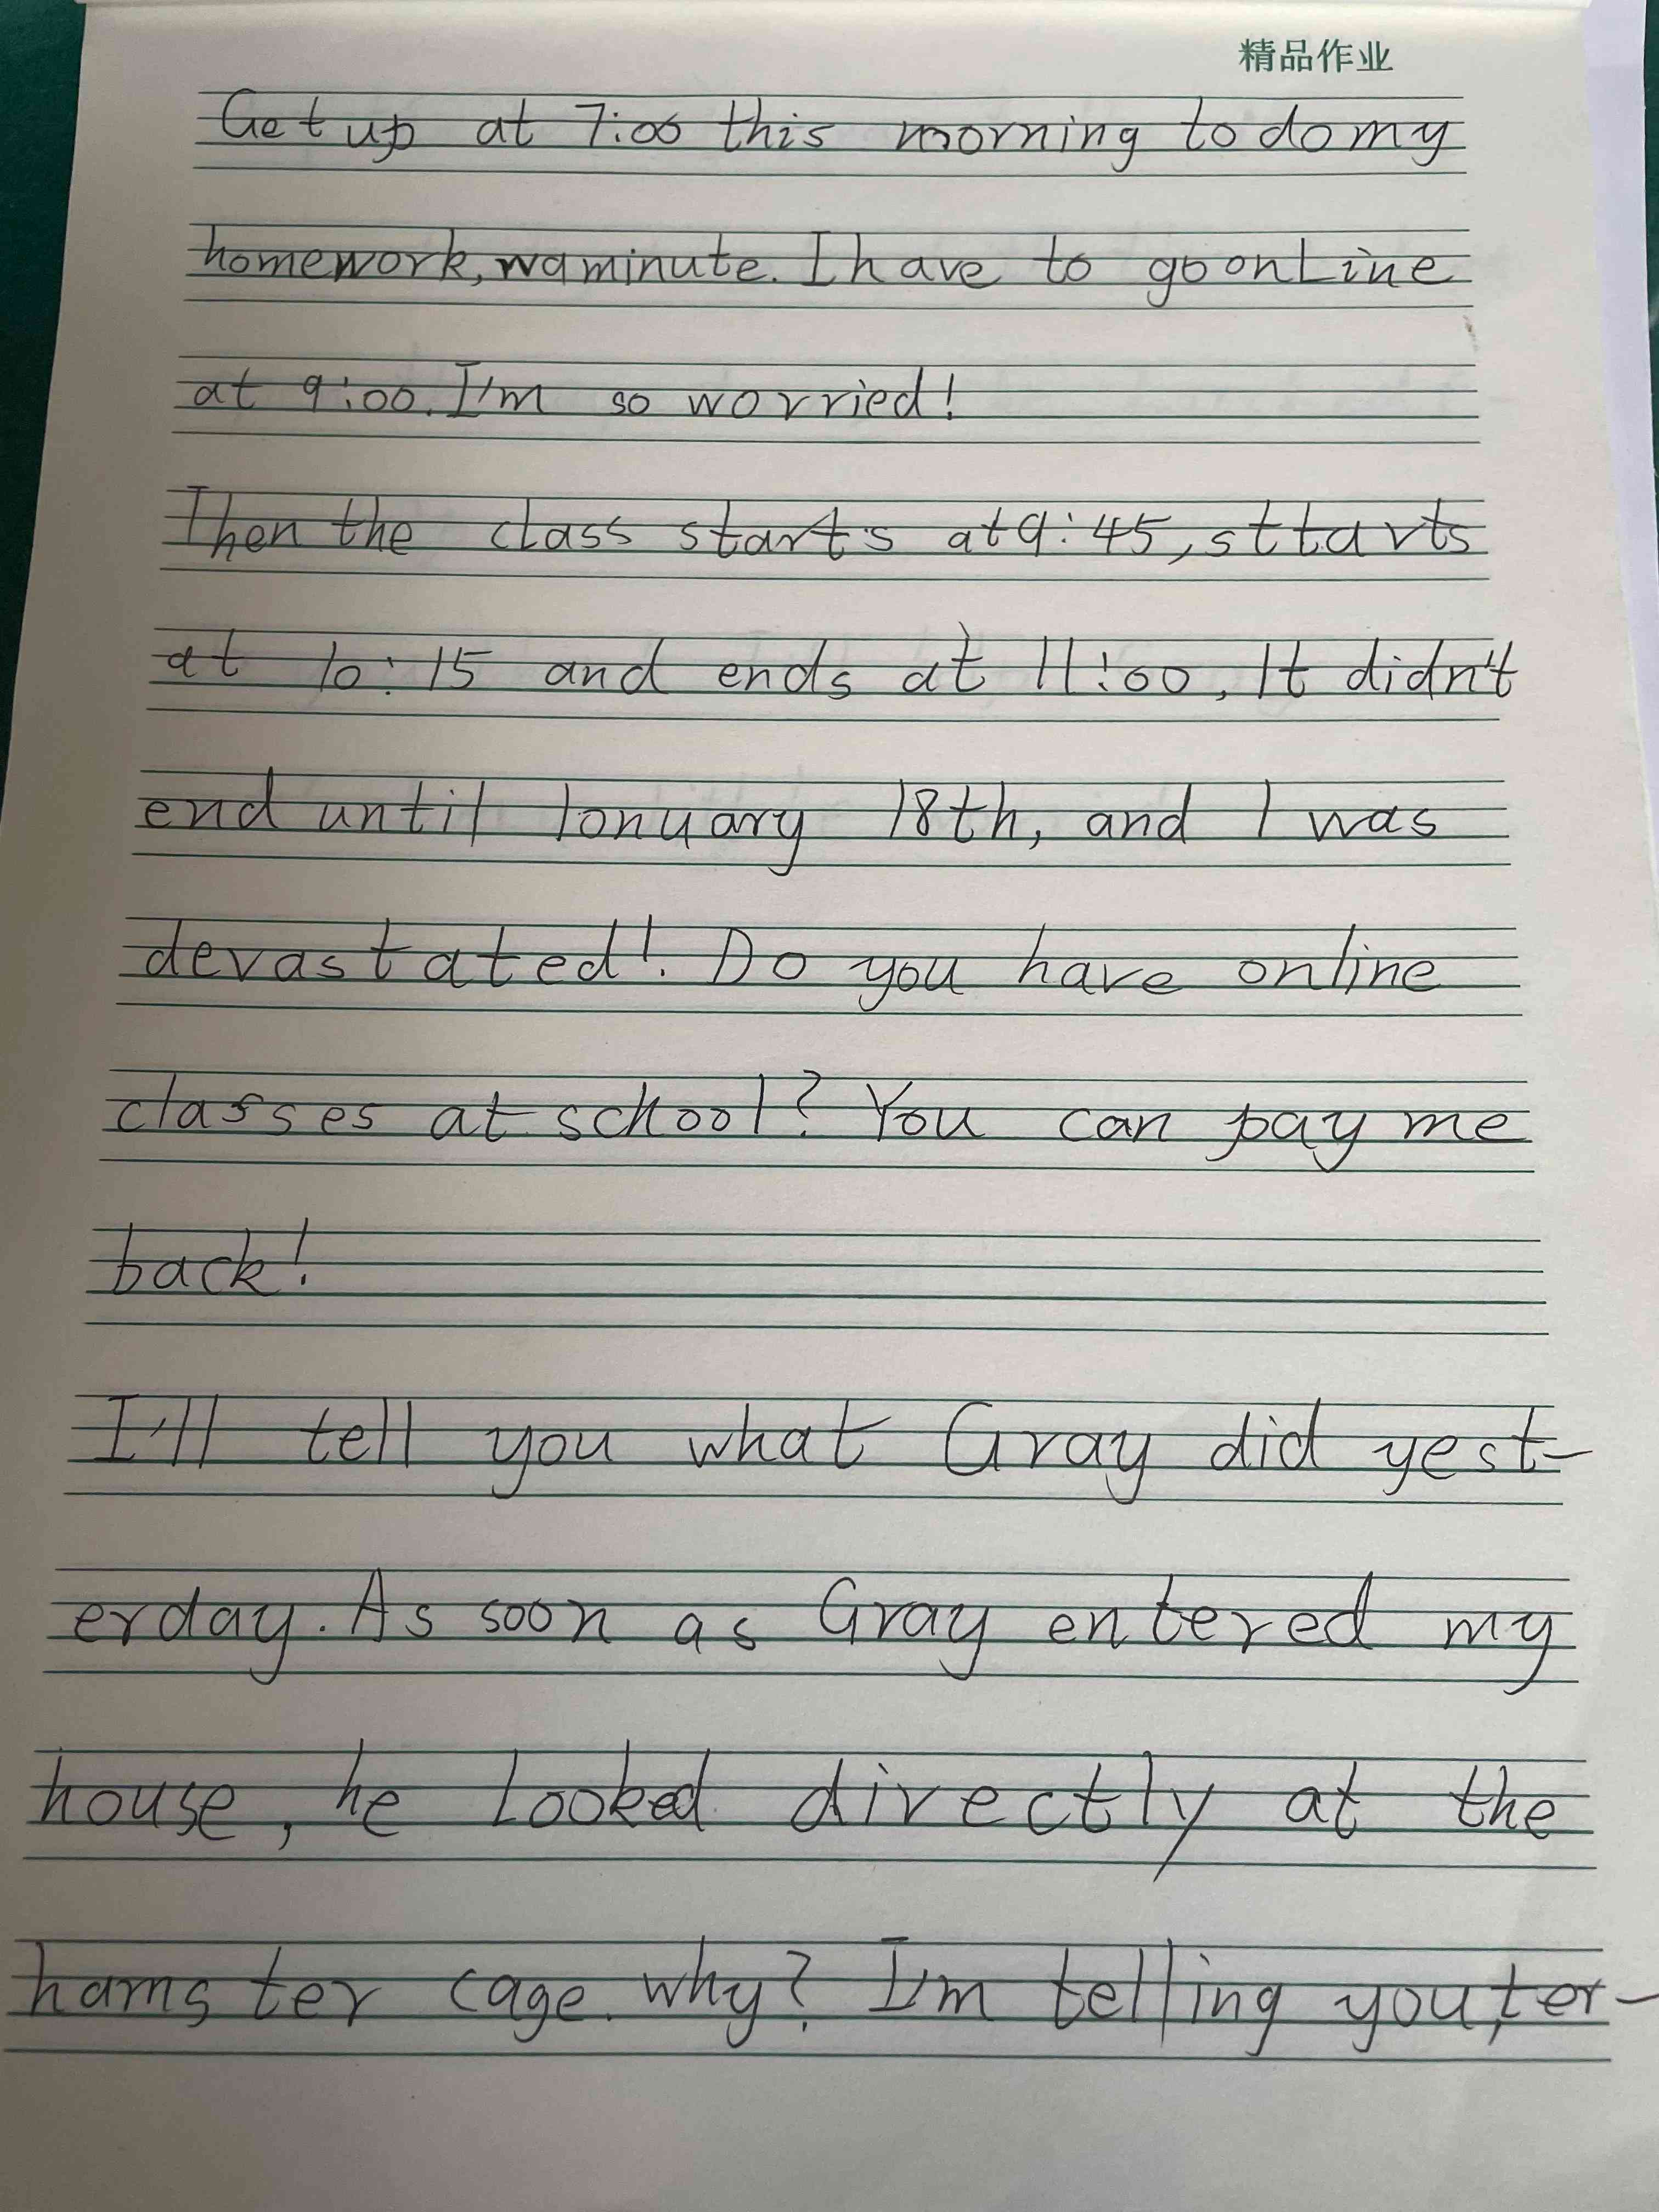 精品作业
Get up at 7:00 this morning to do my
homework, waminute. I have to go onLine
at 9:00. I'm so worried!
Then the class starts at 9:45, sttarts
at 10:15 and ends at 11:00, It didn't
end until Ionuary 18th, and I was
devastated! Do you have online
classes at school? You can pay me
back!
I'll tell you what Gray did yest-
erday. As soon as Gray entered my
house, he Looked directly at the
hamster cage. why? I'm telling you, ter-